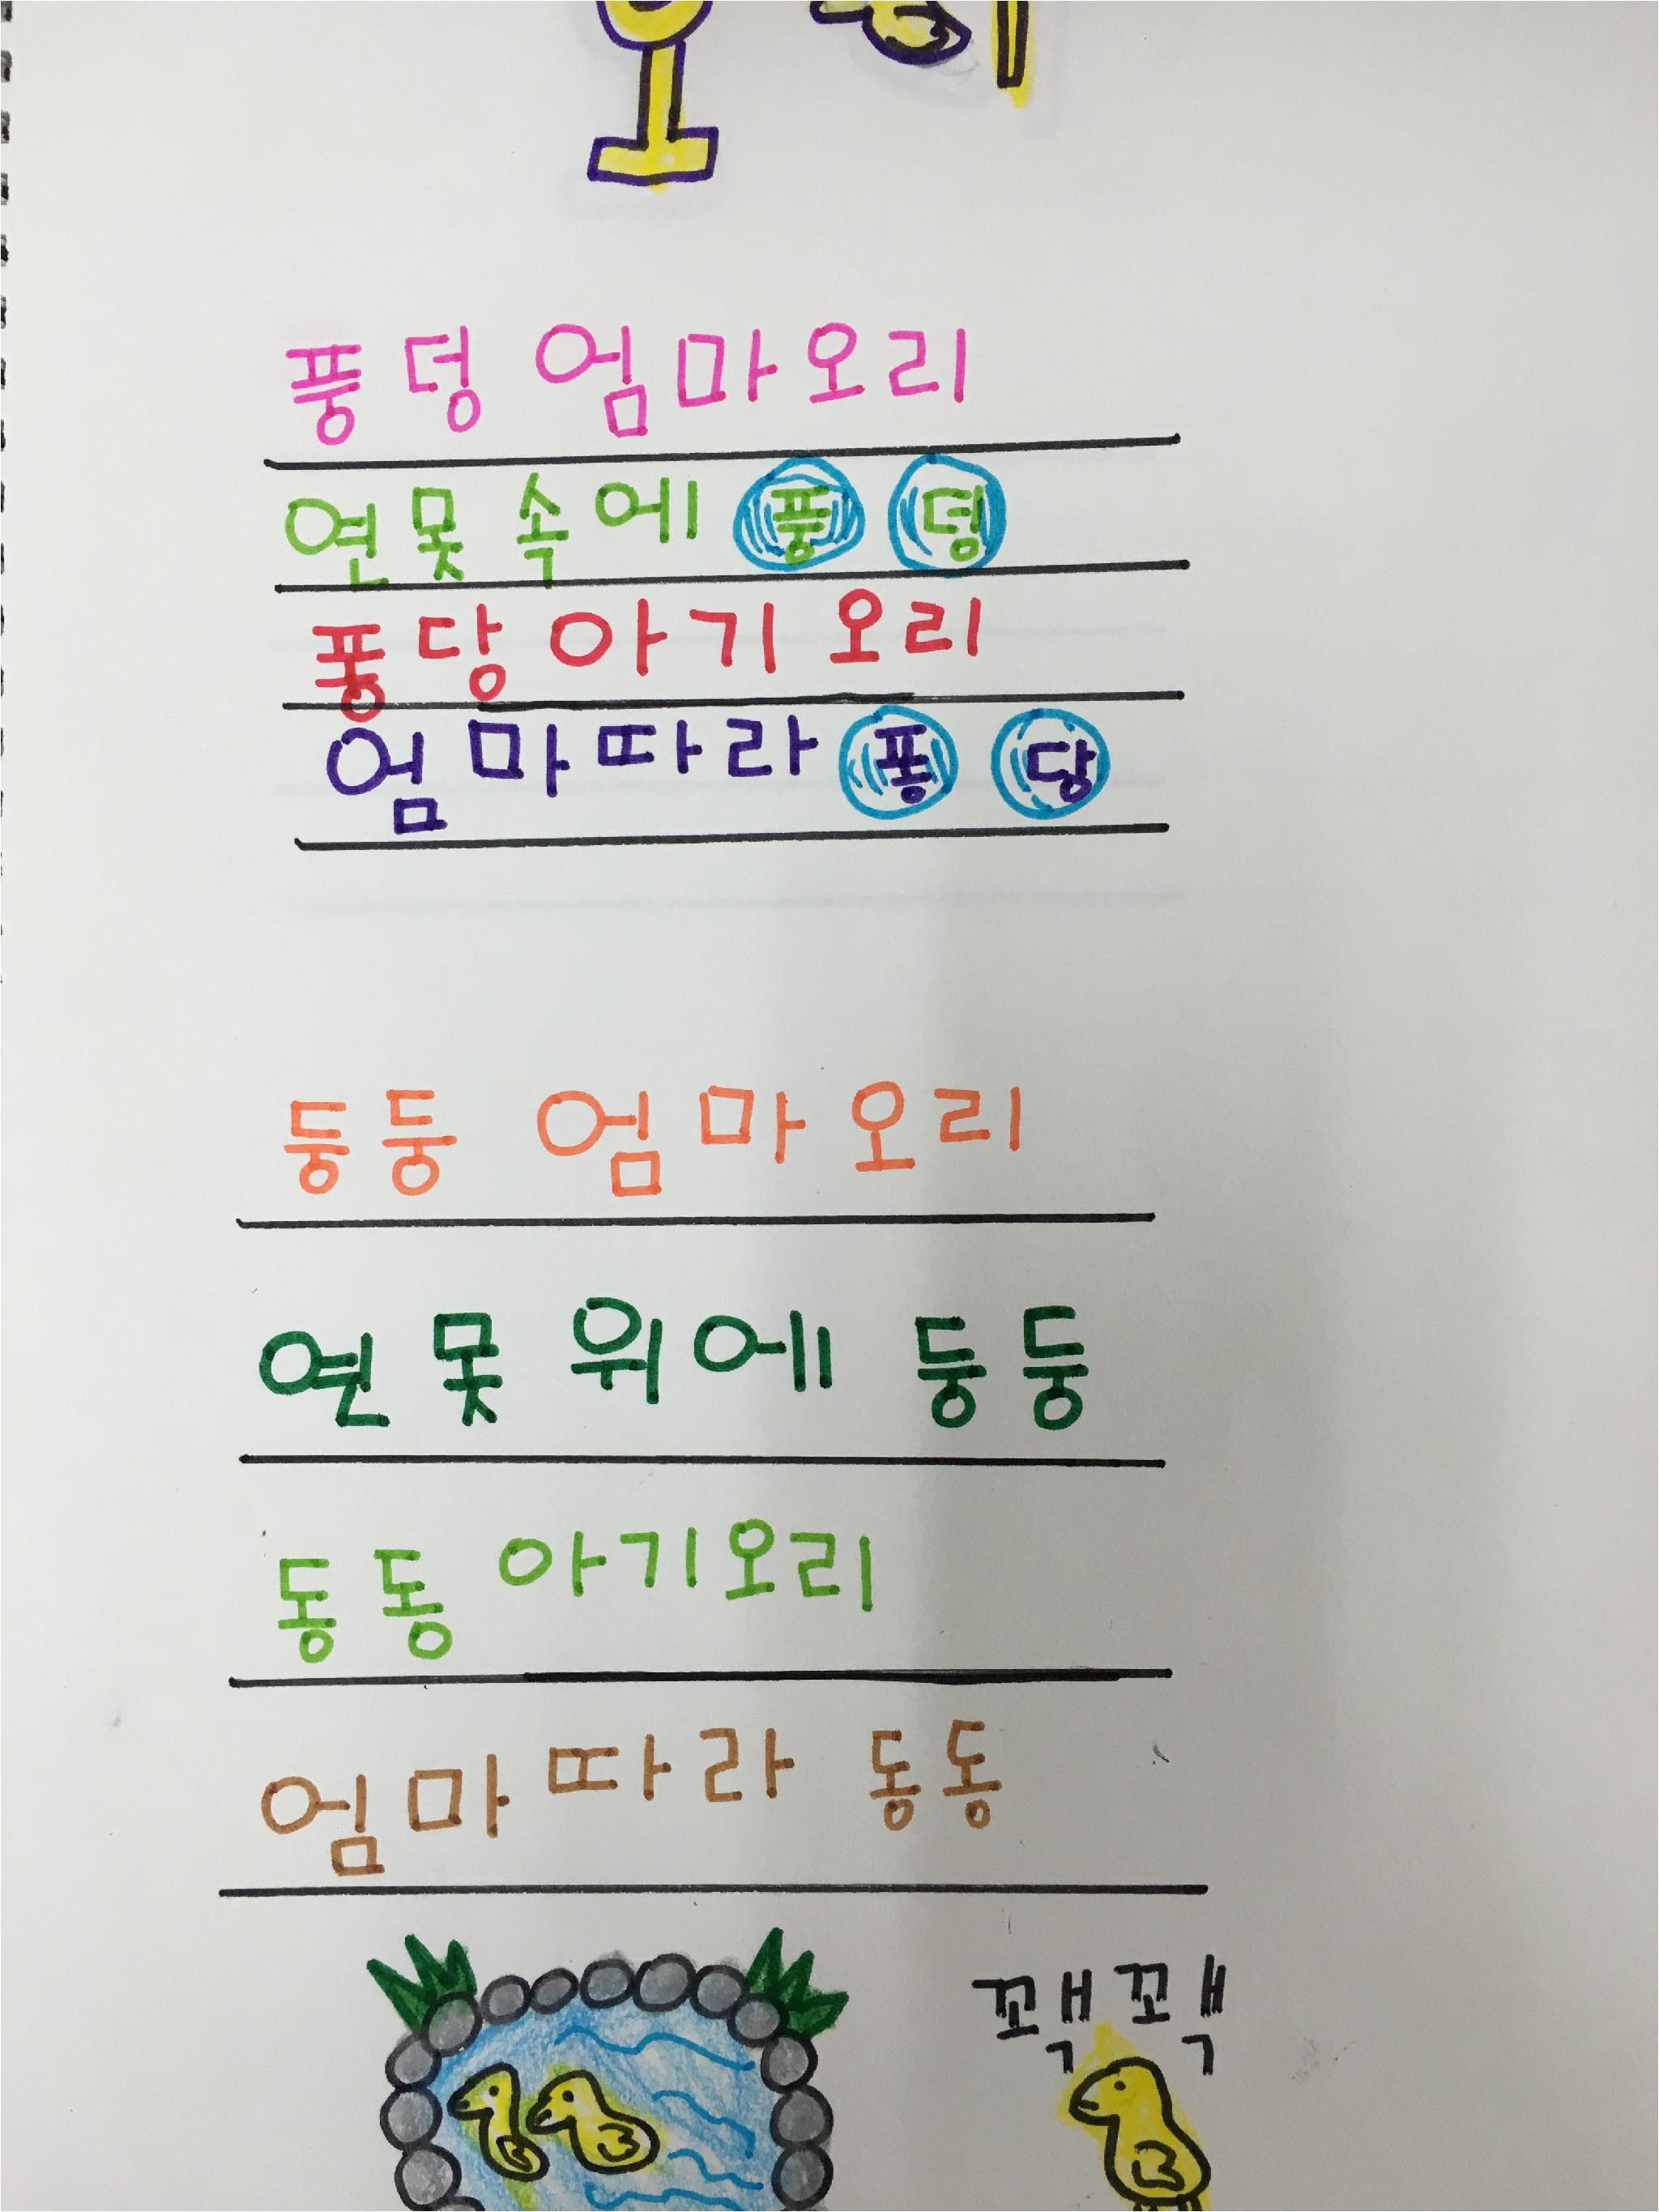 오리
풍덩 엄마오리
연못 속에 풍덩
퐁당 아기 오리
엄마따라 퐁당
둥둥 엄마 오리
연못 위에 둥둥
동동 아기오리
엄마따라 동동
꽥꽥